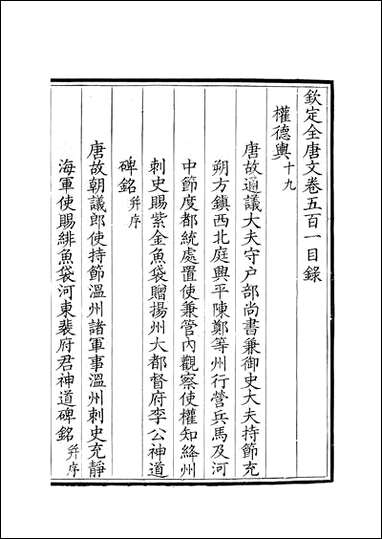 欽定全唐文卷五百一目錄
權德輿十九
唐故通議大夫守戶部尚書兼御史大夫持節充
朔方鎮西北庭興平陳鄭等州行營兵馬及河
中節度都統處置使兼管內觀察使權知絳州
刺史賜紫金魚袋贈揚州大都督府李公神道
碑銘并序
唐故朝議郎使持節溫州諸軍事溫州刺史充靜
海軍使賜緋魚袋河東裴府君神道碑銘并序